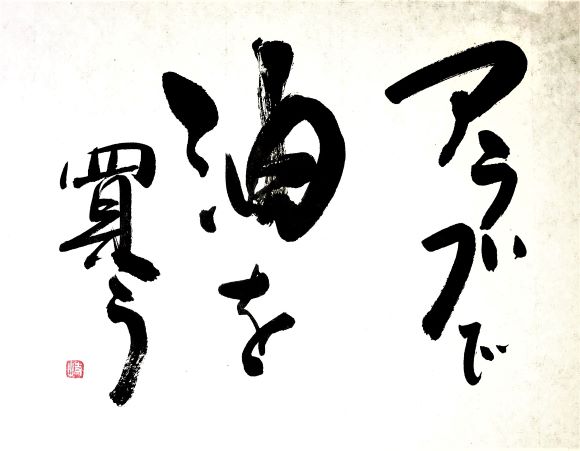 アラブで
油を
買う